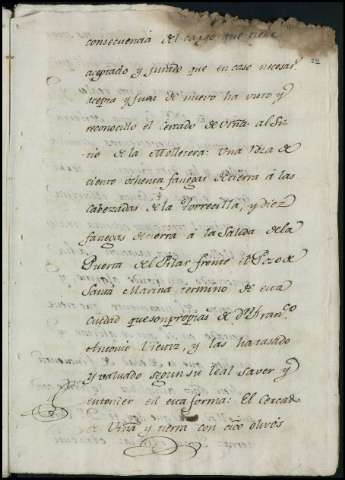 consecuencia del cargo que tiene
aceptado y jurado que en caso necesaº
acepta y jura de nuevo ha visto y
reconocido el cercado de Viña al Si-
tio de la Molletera: Una Pza de
ciento ochenta fanegas de tierra á las
cabezadas de la Torrecilla, y diez
fanegas de tierra á la Salida de la
Puerta del Pilar frente el Pozo de
Santa Marina termino de esta
Ciudad que son propias de Dⁿ Franᶜᵒ
Antonio y las ha tasado
y valuado segun su leal saver y
entender en esta forma: El Cercado
de Viña y tierra con cinco olivos